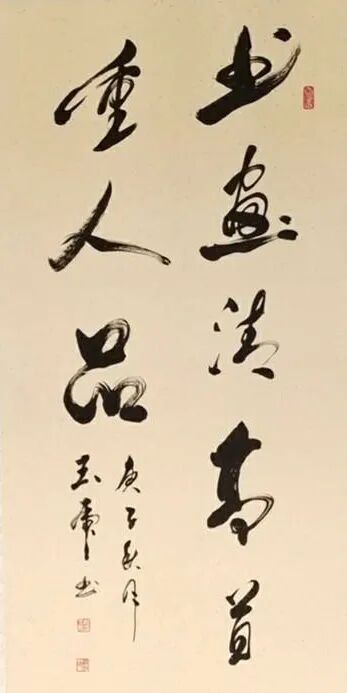 书畫清高首
重人品
庚子月
玉书